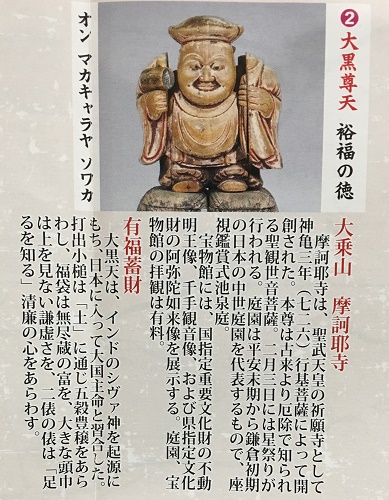 ❷大黒尊天 裕福の徳
オン マカキャラヤ ソワカ
大乗山 摩訶耶寺
摩訶耶寺は、聖武天皇の祈願寺として
神亀三年（七二六）行基菩薩によって開
創された。本尊は古来より厄除で知られ
る聖観世音菩薩。二月三日には星祭りが
行われる。庭園は平安末期から鎌倉初期
の日本の中世庭園を代表するもので、座
視鑑賞式池泉庭。
宝物館には、国指定重要文化財の不動
明王像、千手観音像、および県指定文化
財の阿弥陀如来像を展示する。庭園、宝
物館の拝観は有料。
有福蓄財
大黒天は、インドのシヴァ神を起源に
もち、日本に入って大国主命と習合した。
打出小槌は「土」に通じ五穀豊穣をあら
わし、福袋は無尽蔵の富を、大きな頭巾
は上を見ない謙虚さを、二俵の俵は「足
るを知る」清廉の心をあらわす。